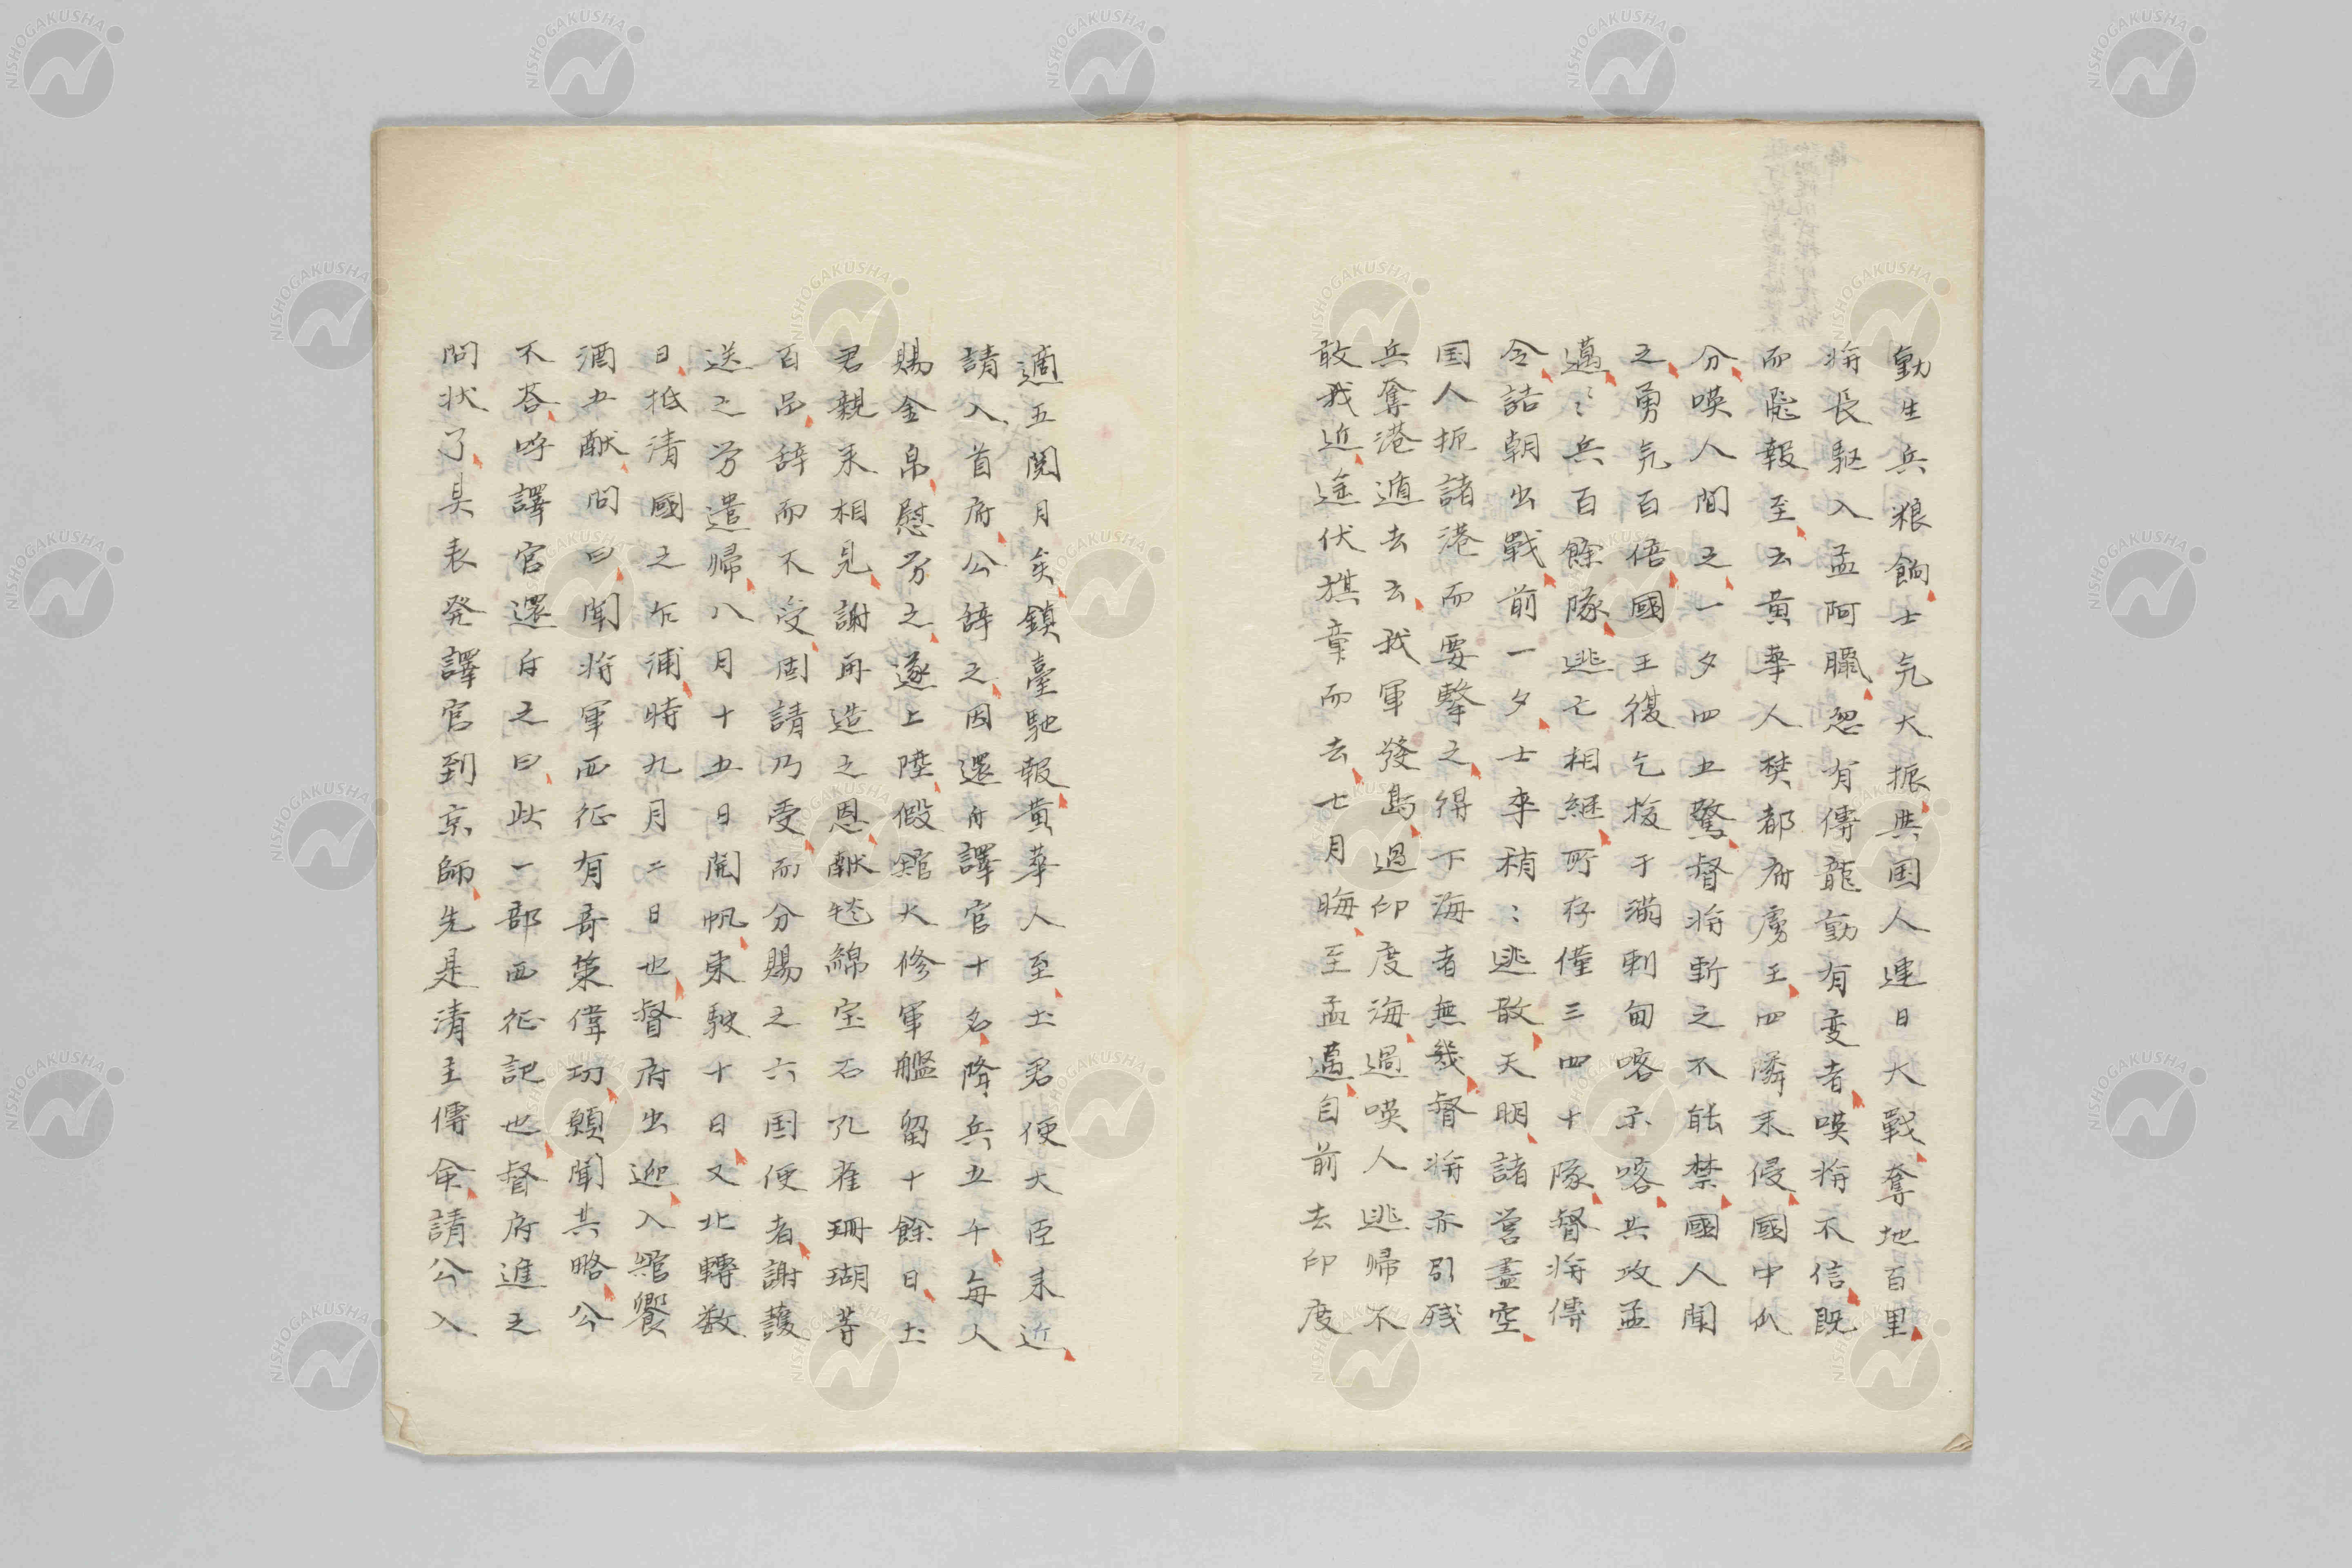 勤生兵粮餉士氣大振與国人連日大戰奪地百里
将長駆入孟阿臘忽有傳龍動有変者嘆将不信既
而飛報至云黄華人焚都府虜王四隣来侵國中瓜
分嘆人聞之一夕四五驚督将斬之不能禁國人聞
之勇気百倍國王復乞援于満剌甸喀示喀共攻孟
邁〻兵百餘隊逃亡相継所存僅三四十隊督将傳
令詰朝出戰前一夕士卒稍〻逃散天明諸営盡空
国人扼諸港而要撃之得下海者無幾督将亦引残
兵奪港遁去云我軍發島過印度海過嘆人逃帰不
敢我近遥伏旗章而去七月晦至孟邁自前去印度
適五閲月矣鎮臺馳報黄華人至土君使大臣来近
請入首府公辞之因還舟譯官十名降兵五千毎人
賜金帛慰労之遂上陸假舘大修軍艦留十餘日土
君親来相見謝再造之恩献毯綿宝石孔雀珊瑚等
百品辞而不受固請乃受而分賜之六国使者謝護
送之労遣帰八月十五日開帆東駛十日又北轉数
日抵清國之乍浦時九月二日也督府出迎入舘饗
酒五献問曰聞将軍西征有奇策偉功願聞其略公
不答呼譯官還舟之曰此一部西征記也督府進之
問状了具表発譯官到京師先是清主傳命請公入
NISHOGAKUSHA